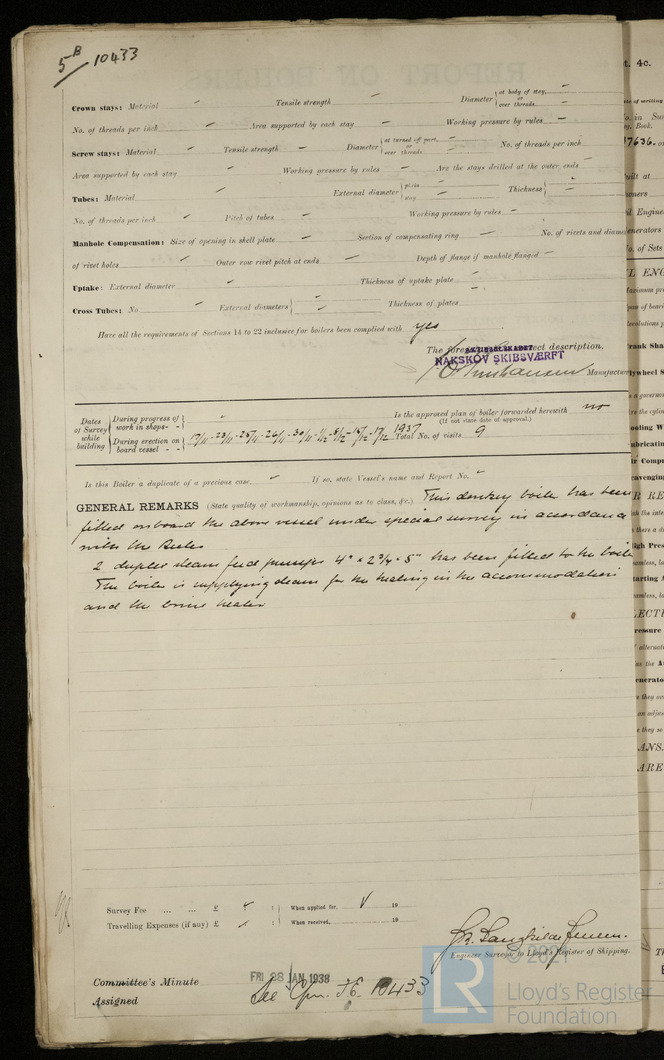 5B 10433
Crown stays: Material – Tensile strength – Diameter { at body of stay, – or over threads –
No. of threads per inch – Area supported by each stay – Working pressure by rules –
Screw stays: Material – Tensile strength – Diameter { at turned off part, – or over threads – No. of threads per inch
Area supported by each stay – Working pressure by rules – Are the stays drilled at the outer ends –
Tubes: Material – External diameter { plain – stay – Thickness { –
No. of threads per inch – Pitch of tubes – Working pressure by rules –
Manhole Compensation: Size of opening in shell plate – Section of compensating ring – No. of rivets and diame
of rivet holes – Outer row rivet pitch at ends – Depth of flange if manhole flanged –
Uptake: External diameter – Thickness of uptake plate –
Cross Tubes: No. – External diameters { – Thickness of plates –
Have all the requirements of Sections 14 to 22 inclusive for boilers been complied with yes
The foregoing is a correct description,
AKTIESELSKABET
NAKSKOV SKIBSVÆRFT
Manufacturer
Dates of Survey while building { During progress of work in shops - - } – Is the approved plan of boiler forwarded herewith no
(If not state date of approval.)
{ During erection on board vessel - - } 17/11 - 23/11 - 25/11 - 26/11 - 30/11 - 1/12 - 8/12 - 16/12 - 17/12 1937 Total No. of visits 9
Is this Boiler a duplicate of a previous case. – If so, state Vessel's name and Report No. –
GENERAL REMARKS (State quality of workmanship, opinions as to class, &c.) This donkey boiler has been
fitted onboard the above vessel under special survey in accordance
with the Rules
2 duplex steam feed pumps 4" × 2 3/4 × 5" has been fitted to the boiler
The boiler is supplying steam for the heating in the accommodation
and the brine heater
Survey Fee ... ... £ – : : When applied for, 19
Travelling Expenses (if any) £ – : : When received, 19
Engineer Surveyor to Lloyd's Register of Shipping.
Committee's Minute FRI 28 JAN 1938
Assigned See Gen. F.E. 10433
© 2021
LR Lloyd's Register
Foundation